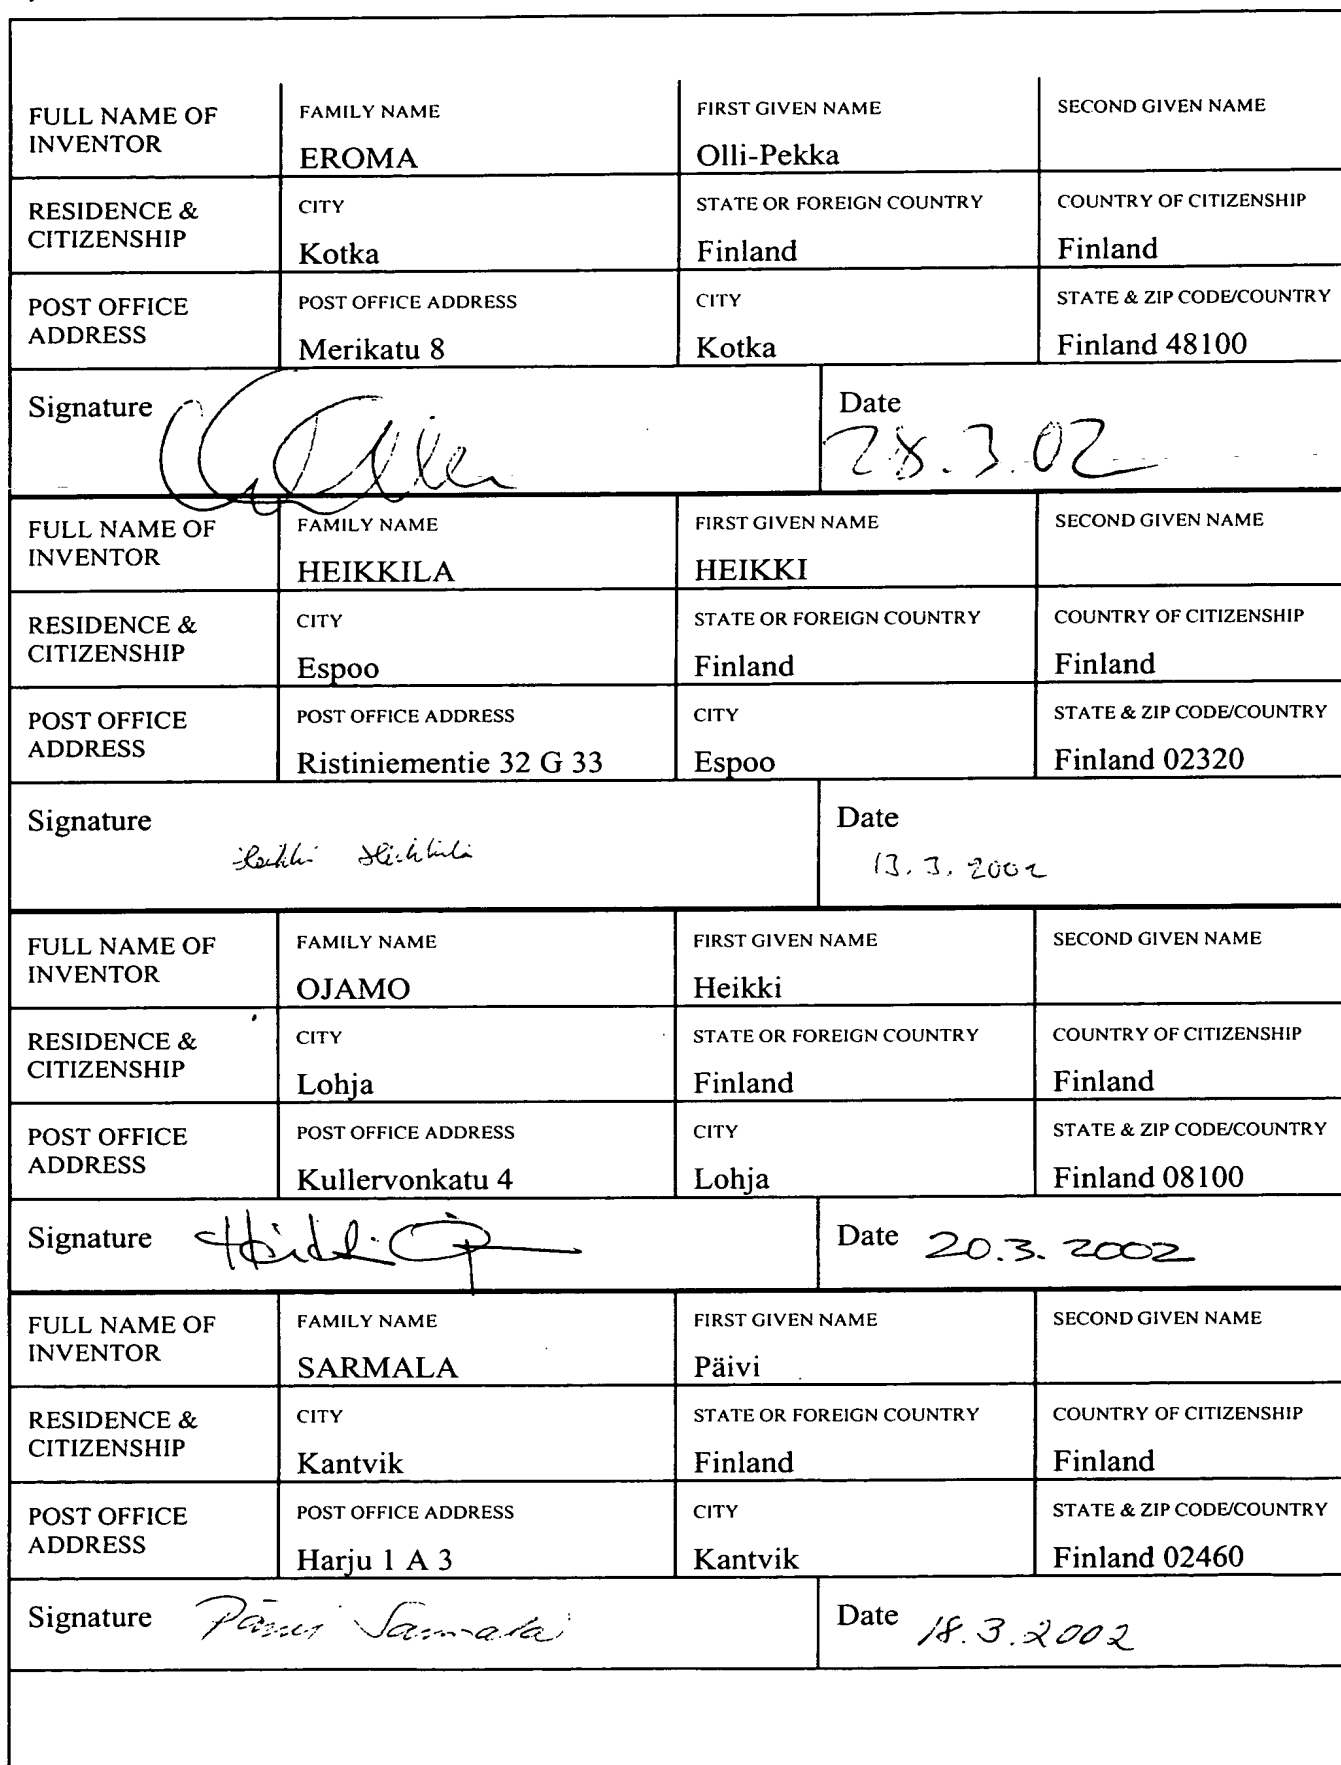 FULL NAME OF INVENTOR FAMILY NAME EROMA FIRST GIVEN NAME Olli-Pekka SECOND GIVEN NAME
RESIDENCE & CITIZENSHIP CITY Kotka STATE OR FOREIGN COUNTRY Finland COUNTRY OF CITIZENSHIP Finland
POST OFFICE ADDRESS POST OFFICE ADDRESS Merikatu 8 CITY Kotka STATE & ZIP CODE/COUNTRY Finland 48100
Signature Date 28.3.02
FULL NAME OF INVENTOR FAMILY NAME HEIKKILA FIRST GIVEN NAME HEIKKI SECOND GIVEN NAME
RESIDENCE & CITIZENSHIP CITY Espoo STATE OR FOREIGN COUNTRY Finland COUNTRY OF CITIZENSHIP Finland
POST OFFICE ADDRESS POST OFFICE ADDRESS Ristiniementie 32 G 33 CITY Espoo STATE & ZIP CODE/COUNTRY Finland 02320
Signature Heikki Heikkilä Date 13.3.2002
FULL NAME OF INVENTOR FAMILY NAME OJAMO FIRST GIVEN NAME Heikki SECOND GIVEN NAME
RESIDENCE & CITIZENSHIP CITY Lohja STATE OR FOREIGN COUNTRY Finland COUNTRY OF CITIZENSHIP Finland
POST OFFICE ADDRESS POST OFFICE ADDRESS Kullervonkatu 4 CITY Lohja STATE & ZIP CODE/COUNTRY Finland 08100
Signature Heikki Date 20.3.2002
FULL NAME OF INVENTOR FAMILY NAME SARMALA FIRST GIVEN NAME Päivi SECOND GIVEN NAME
RESIDENCE & CITIZENSHIP CITY Kantvik STATE OR FOREIGN COUNTRY Finland COUNTRY OF CITIZENSHIP Finland
POST OFFICE ADDRESS POST OFFICE ADDRESS Harju 1 A 3 CITY Kantvik STATE & ZIP CODE/COUNTRY Finland 02460
Signature Päivi Sarmala Date 18.3.2002